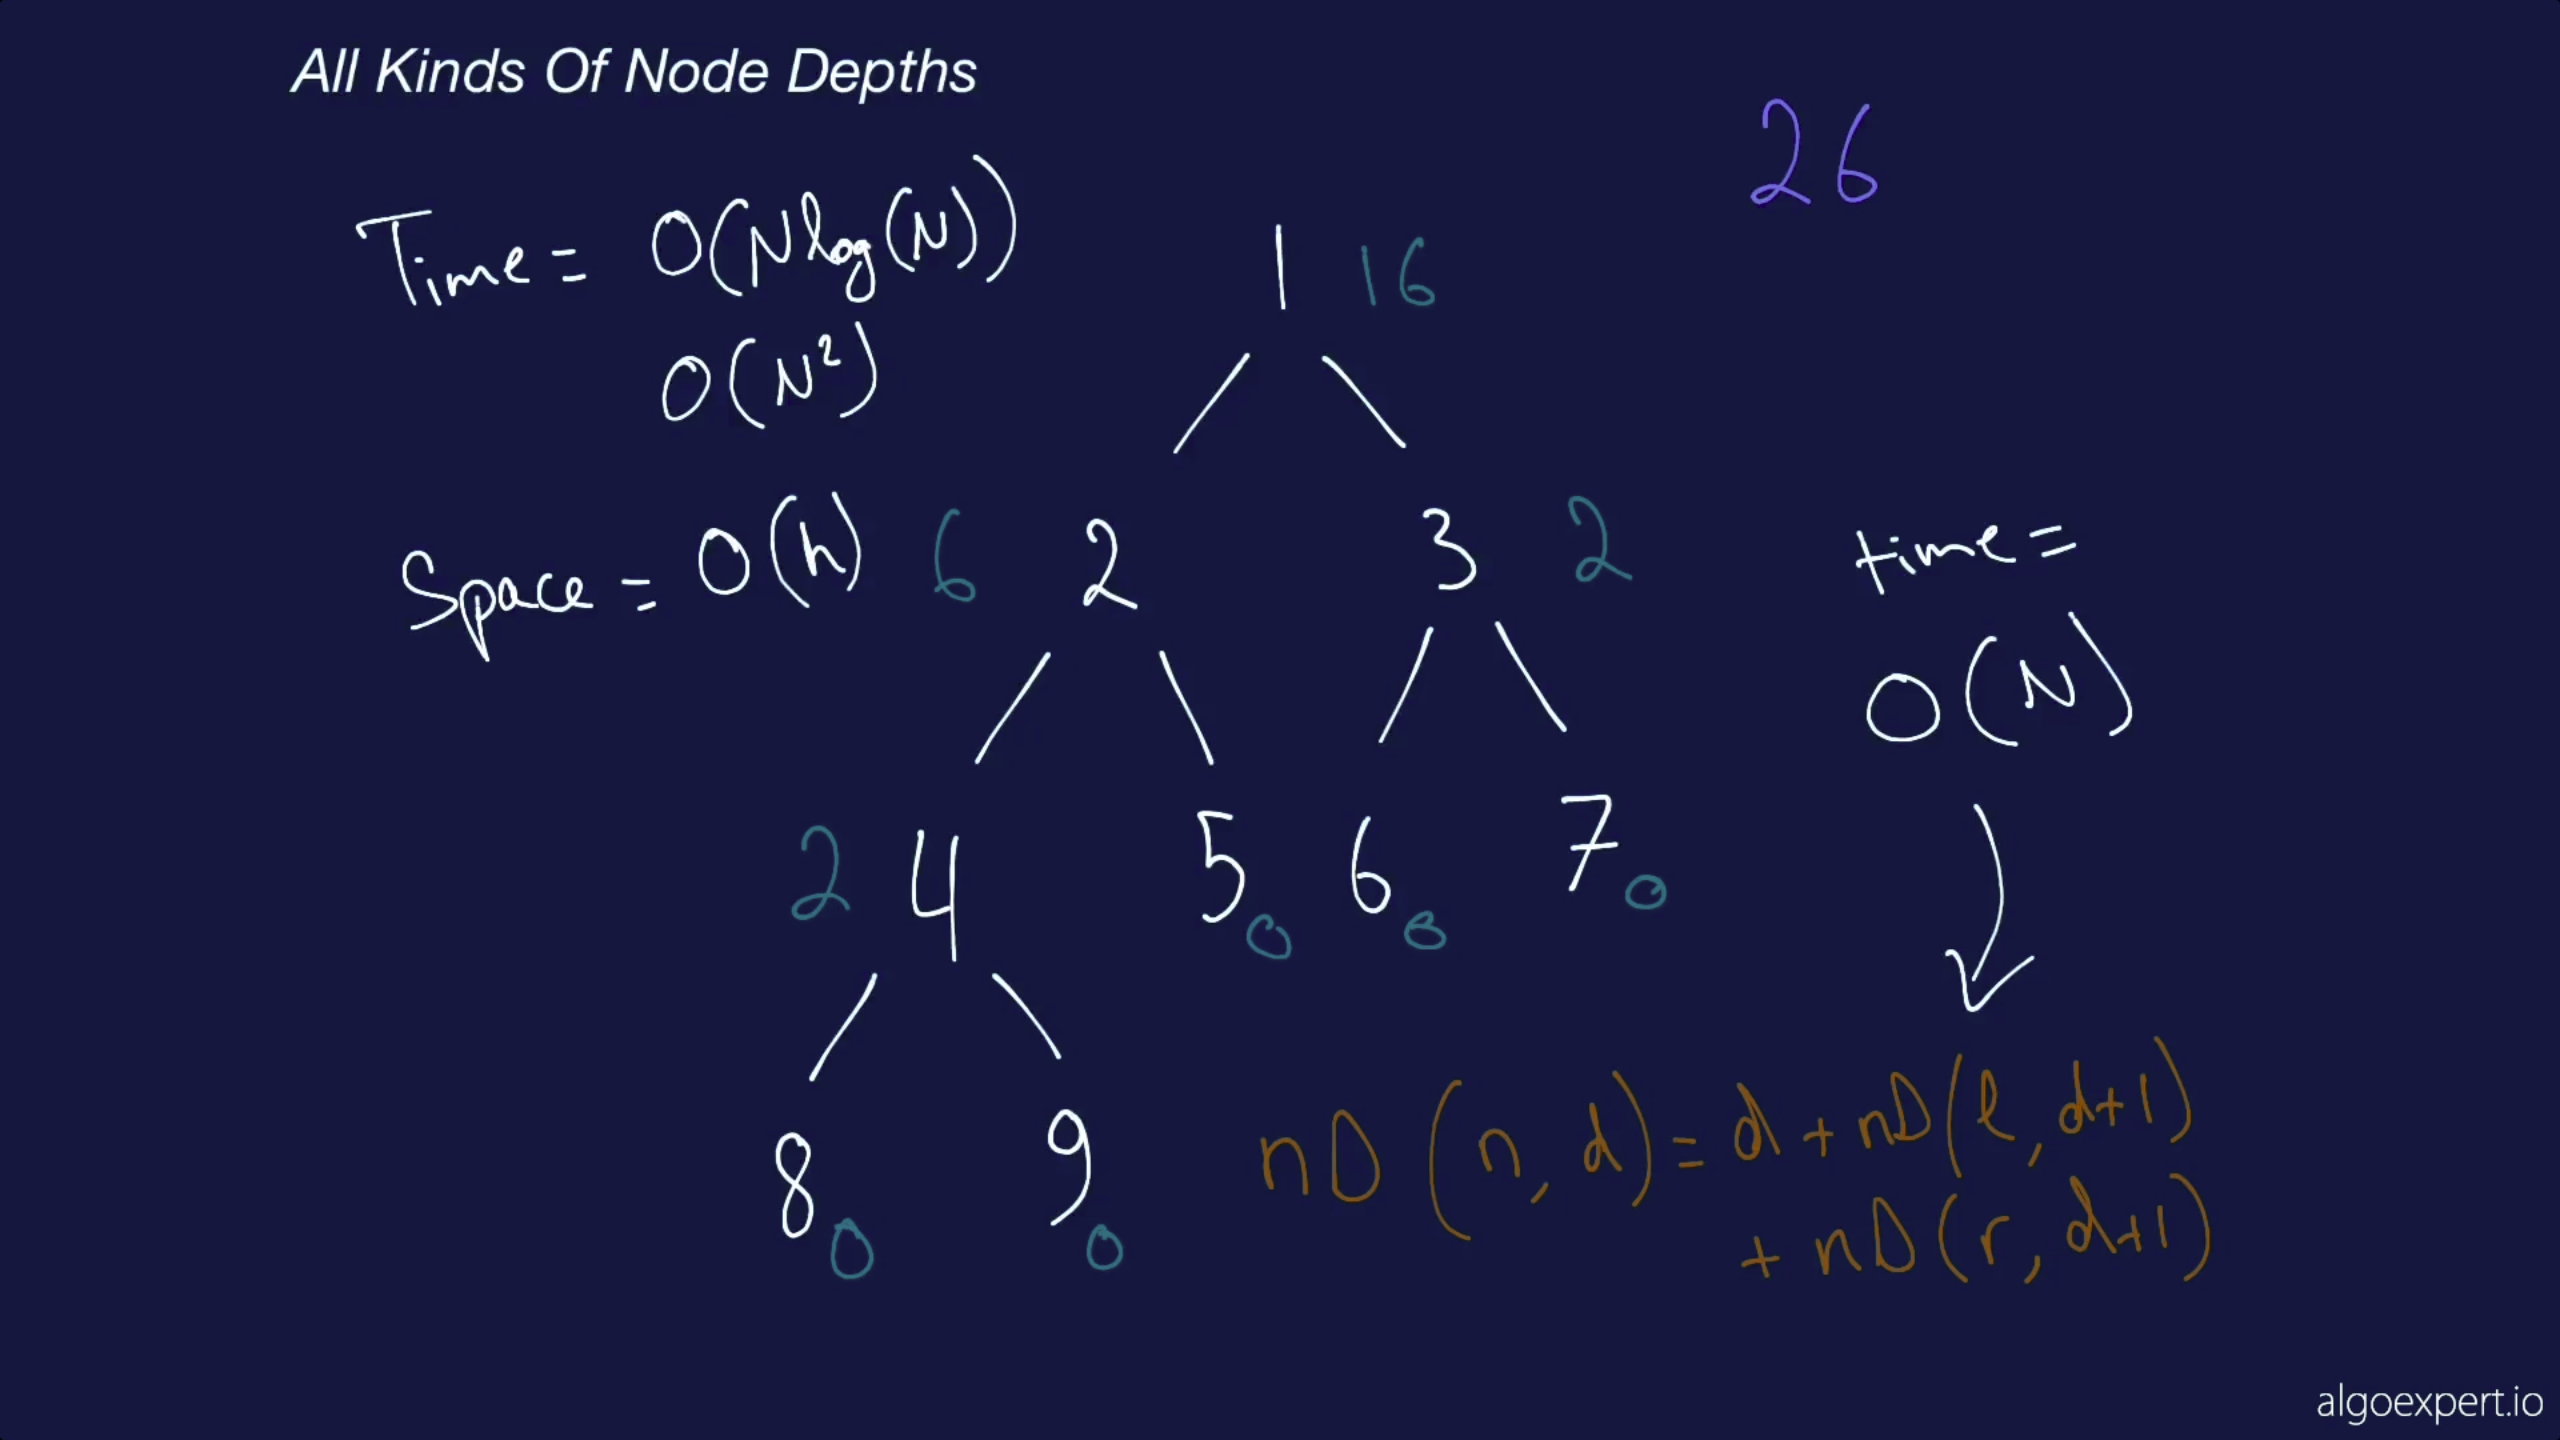 All Kinds Of Node Depths
26
Time = O(Nlog(N))
1 16
O(N²)
Space = O(h)
6 2 3 2
time =
O(N)
2 4 5 0 6 0 7 0
8 0 9 0
nD(n, d) = d + nD(l, d+1)
+ nD(r, d+1)
algoexpert.io